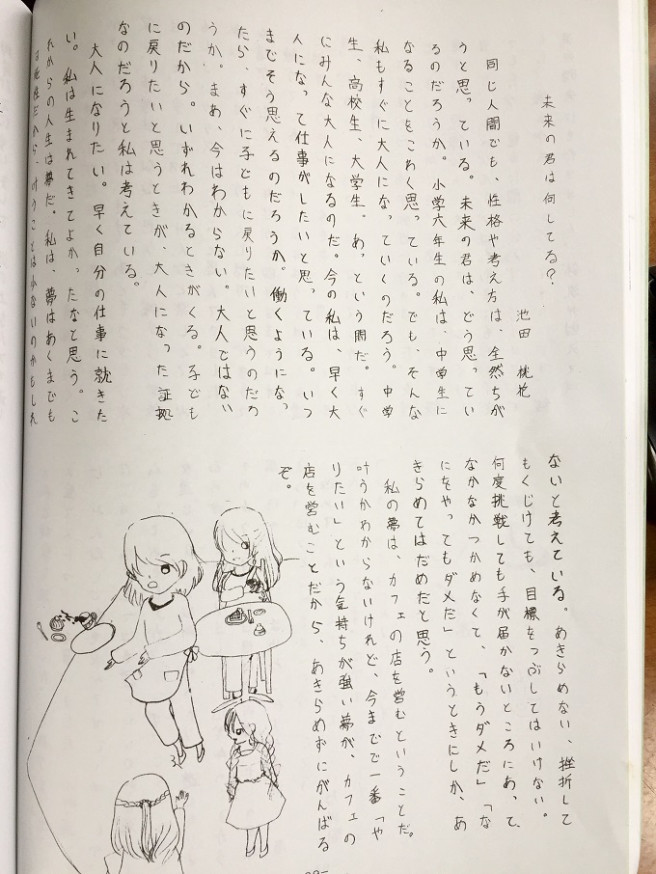 未来の君は何してる？
池田 桃花
同じ人間でも、性格や考え方は、全然ちが
うと思っている。未来の君は、どう思ってい
るのだろうか。小学六年生の私は、中学生に
なることをこわく思っている。でも、そんな
私もすぐに大人になっていくのだろう。中学
生、高校生、大学生。あっという間だ。すぐ
にみんな大人になるのだ。今の私は、早く大
人になって仕事がしたいと思っている。いつ
までそう思えるのだろうか。働くようになっ
たら、すぐに子どもに戻りたいと思うのだろ
うか。まあ、今はわからない。大人ではない
のだから。いずれわかるときがくる。子ども
に戻りたいと思うときが、大人になった証拠
なのだろうと私は考えている。
大人になりたい。早く自分の仕事に就きた
い。私は生まれてきてよかったなと思う。こ
れからの人生は夢だ。私は、夢はあくまでも
だから、叶うことは少ないのかもしれ
ないと考えている。あきらめない、挫折して
もくじけても、目標をつぶしてはいけない。
何度挑戦しても手が届かないところにあって、
なかなかつかめなくて、「もうダメだ」「な
にをやってもダメだ」というときにしか、あ
きらめてはだめだと思う。
私の夢は、カフェの店を営むということだ。
叶うかわからないけれど、今までで一番「や
りたい」という気持ちが強い夢が、カフェの
店を営むことだから、あきらめずにがんばる
ぞ。